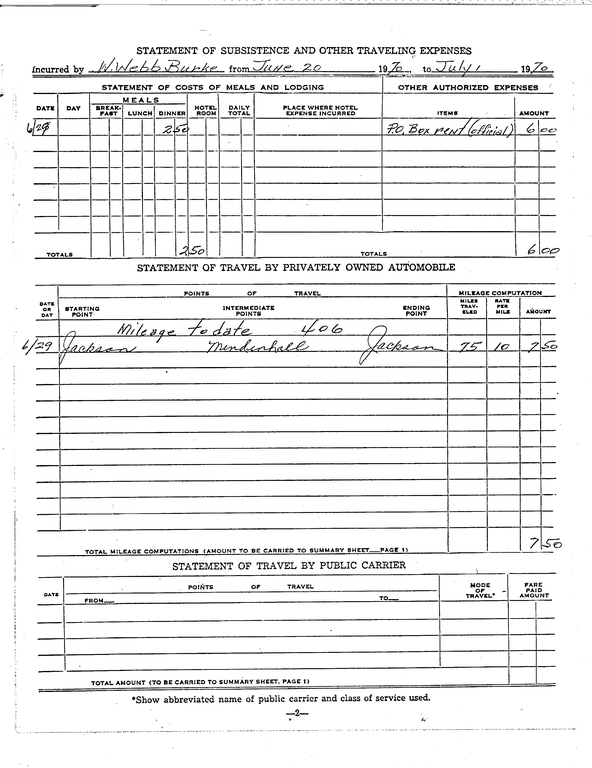 STATEMENT OF SUBSISTENCE AND OTHER TRAVELING EXPENSES
incurred by W. Webb Burke from June 20 1970 to July 1 1970
STATEMENT OF COSTS OF MEALS AND LODGING OTHER AUTHORIZED EXPENSES
MEALS
DATE DAY BREAK-FAST LUNCH DINNER HOTEL ROOM DAILY TOTAL PLACE WHERE HOTEL EXPENSE INCURRED ITEMS AMOUNT
6/29 2 50 P.O. Box rent (official) 6 00
TOTALS 2 50 TOTALS 6 00
STATEMENT OF TRAVEL BY PRIVATELY OWNED AUTOMOBILE
POINTS OF TRAVEL MILEAGE COMPUTATION
DATE OR DAY STARTING POINT INTERMEDIATE POINTS ENDING POINT MILES TRAV-ELED RATE PER MILE AMOUNT
Mileage to date 406
6/29 Jackson Mendenhall Jackson 75 10 7 50
TOTAL MILEAGE COMPUTATIONS (AMOUNT TO BE CARRIED TO SUMMARY SHEET—PAGE 1) 7 50
STATEMENT OF TRAVEL BY PUBLIC CARRIER
DATE POINTS OF TRAVEL MODE OF TRAVEL* FARE PAID AMOUNT
FROM— TO—
TOTAL AMOUNT (TO BE CARRIED TO SUMMARY SHEET, PAGE 1)
*Show abbreviated name of public carrier and class of service used.
—2—